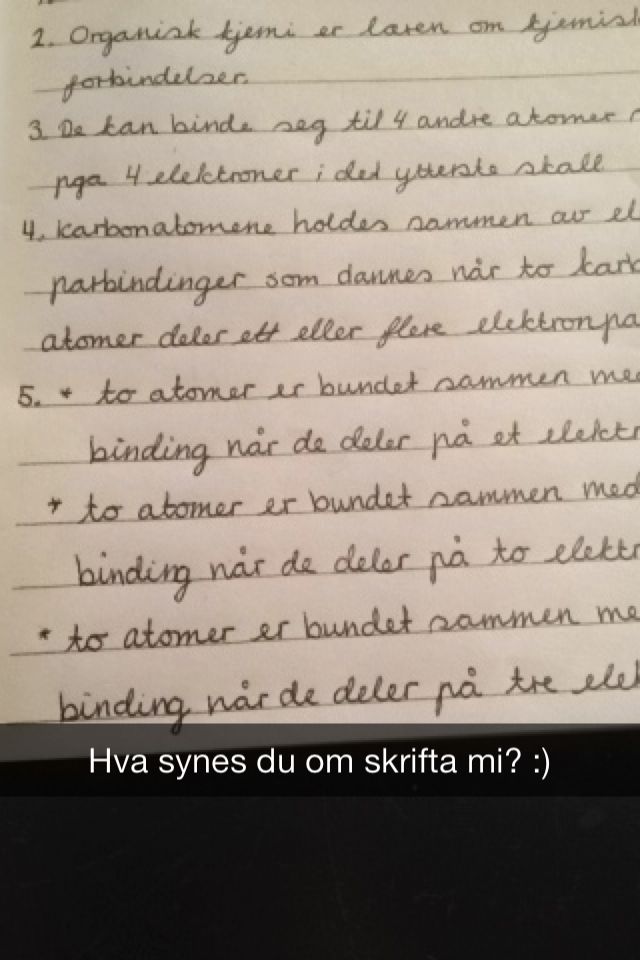 2. Organisk kjemi er læren om kjemisk
forbindelser.
3 De kan binde seg til 4 andre atomer
pga 4 elektroner i det ytterste skall
4. karbonatomene holdes sammen av el
parbindinger som dannes når to karb
atomer deler ett eller flere elektronpa
5. * to atomer er bundet sammen med
binding når de deler på et elektr
* to atomer er bundet sammen med
binding når de deler på to elektr
* to atomer er bundet sammen me
binding når de deler på tre elek
Hva synes du om skrifta mi? :)